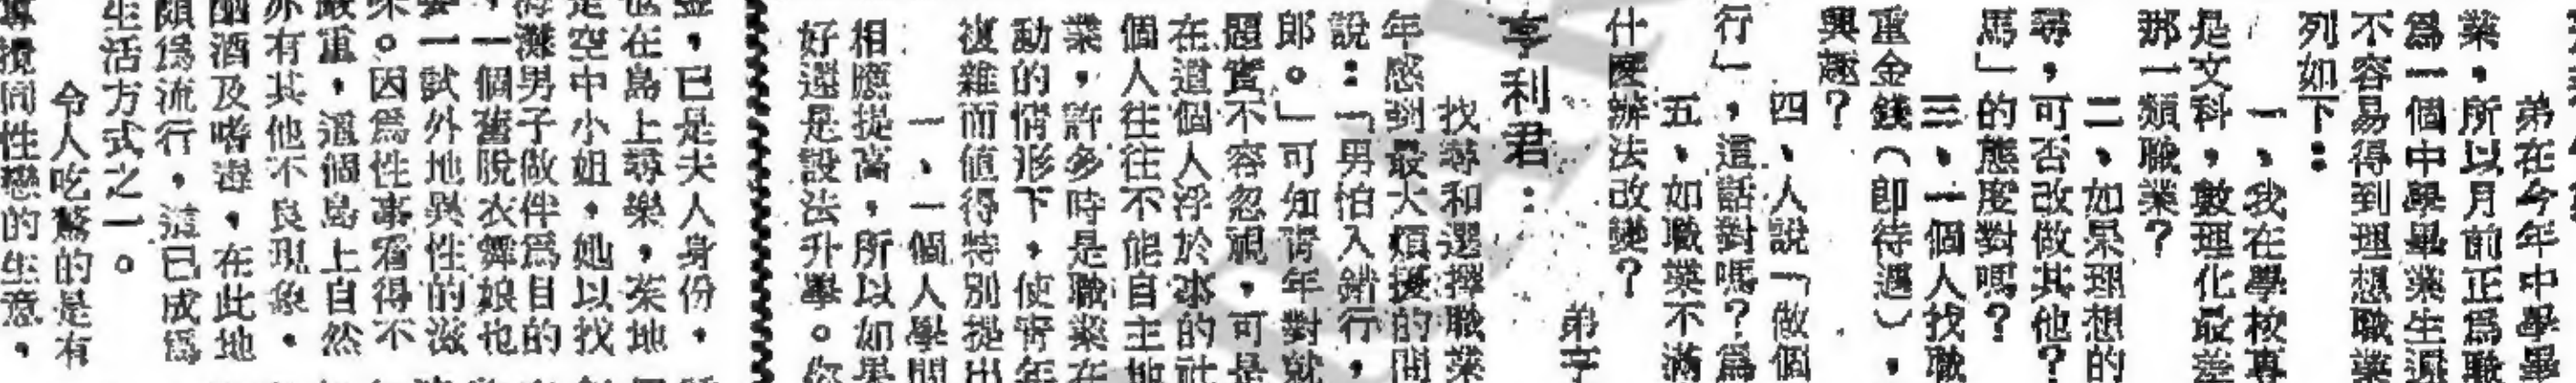 弟在今年中學畢
業，所以月前正爲職
爲一個中學畢業生選
不容易得到理想職業
列如下：
一、我在學校專
是文科，數理化最差
那一類職業？
二、如果理想的
尋，可否改做其他？
馬」的態度對嗎？
三、一個人找職
重金錢（即待遇），
興趣？
四、人說「做個
行」，這話對嗎？爲
五、如職業不滿
什麼辦法改變？
弟亨
亨利君：
找尋和選擇職業
年感到最大煩擾的問
說：「男怕入錯行，
郎。」可知靑年對就
題實不容忽視，可是
在這個人浮於事的社
個人往往不能自主地
業，許多時是職業在
動的情形下，使靑年
複雜而値得特別提出
一、一個人學問
相應提高，所以如果
好還是設法升學。你
，已是夫人身份，
也在島上尋樂，某地
是空中小姐，她以找
海灘男子做伴爲目的
，一個舊脫衣舞娘也
要一試外地異性的滋
味。因爲性事看得不
嚴重，這個島上自然
亦有其他不良現象。
酗酒及嗜毒，在此地
頗爲流行，這已成爲
生活方式之一。
令人吃驚的是有
攪同性戀的生意，